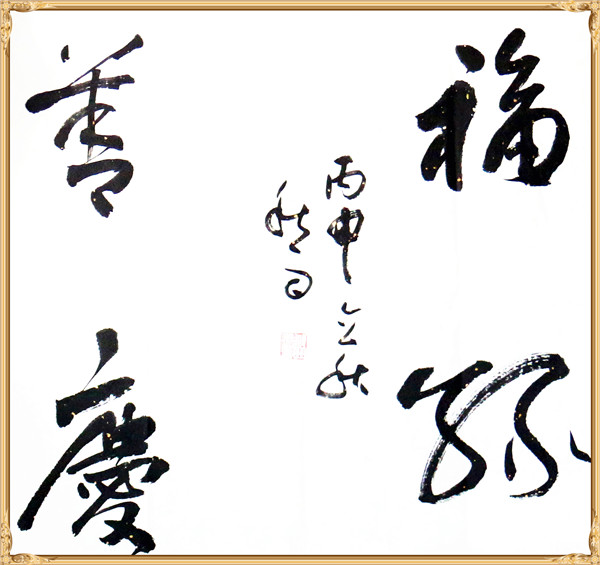 福緣
丙申立秋
秋
善慶